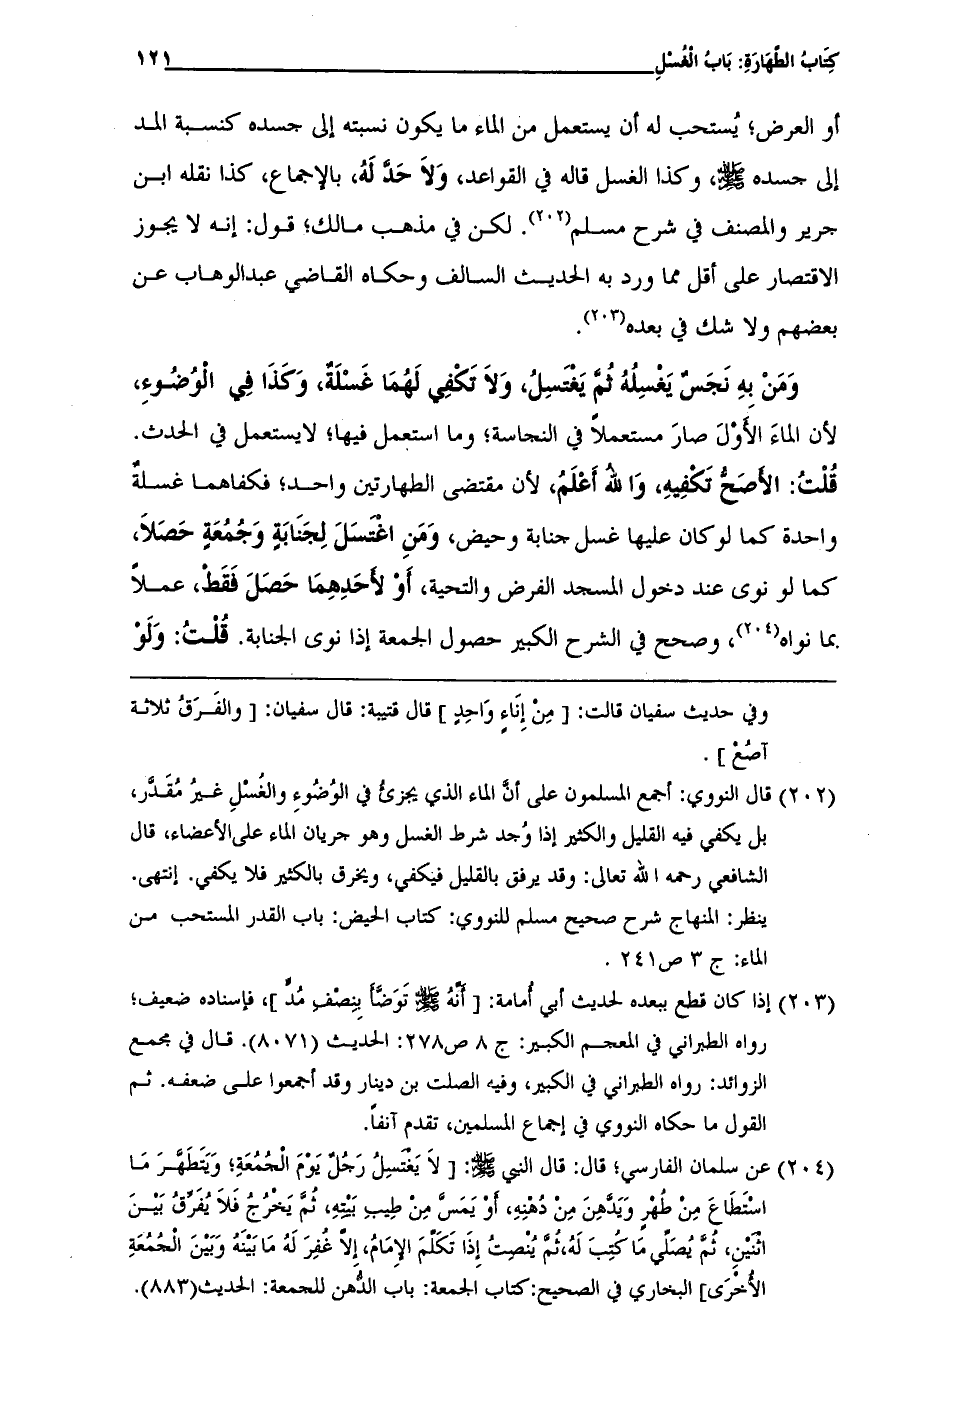 كِتَابُ الطَّهَارَةِ: بَابُ الْغُسْلِ ١٢١
أو العرض؛ يُستحب له أن يستعمل من الماء ما يكون نسبته إلى جسده كنسبة المد
إلى جسده ﷺ، وكذا الغسل قاله في القواعد، وَلاَ حَدَّ لَهُ، بالإجماع، كذا نقله ابن
جرير والمصنف في شرح مسلم(٢٠٢). لكن في مذهب مالك؛ قول: إنه لا يجوز
الاقتصار على أقل مما ورد به الحديث السالف وحكاه القاضي عبدالوهاب عن
بعضهم ولا شك في بعده(٢٠٣).
وَمَنْ بِهِ نَجَسٌ يَغْسِلُهُ ثُمَّ يَغْتَسِلُ، وَلاَ تَكْفِي لَهُمَا غَسْلَةٌ، وَكَذَا فِي الْوُضُوءِ،
لأن الماءَ الأَوَّلَ صارَ مستعملاً في النجاسة؛ وما استعمل فيها؛ لايستعمل في الحدث.
قُلْتُ: الأَصَحُّ تَكْفِيهِ، وَا للهُ أَعْلَمُ، لأن مقتضى الطهارتين واحد؛ فكفاهما غسلةٌ
واحدة كما لوكان عليها غسل جنابة وحيض، وَمَنِ اغْتَسَلَ لِجَنَابَةٍ وَجُمُعَةٍ حَصَلاَ،
كما لو نوى عند دخول المسجد الفرض والتحية، أَوْ لأَحَدِهِمَا حَصَلَ فَقَطْ، عملاً
بما نواه(٢٠٤)، وصحح في الشرح الكبير حصول الجمعة إذا نوى الجنابة. قُلْتُ: وَلَوْ
وفي حديث سفيان قالت: [ مِنْ إِنَاءٍ وَاحِدٍ ] قال قتيبة: قال سفيان: [ والفَرَقُ ثلاثة
آصُعْ ] .
(٢٠٢) قال النووي: أجمع المسلمون على أنَّ الماء الذي يجزئُ في الوُضُوءِ والغُسْلِ غيرُ مُقَدَّر،
بل يكفي فيه القليل والكثير إذا وُجد شرط الغسل وهو جريان الماء على‌الأعضاء، قال
الشافعي رحمه ا لله تعالى: وقد يرفق بالقليل فيكفي، ويخرق بالكثير فلا يكفي. إنتهى.
ينظر: المنهاج شرح صحيح مسلم للنووي: كتاب الحيض: باب القدر المستحب من
الماء: ج ٣ ص٢٤١ .
(٢٠٣) إذا كان قطع ببعده لحديث أبي أُمامة: [ أَنَّهُ ﷺ تَوَضَّأَ بِنِصْفِ مُدٍّ ]، فإسناده ضعيف؛
رواه الطبراني في المعجم الكبير: ج ٨ ص٢٧٨: الحديث (٨٠٧١). قال في مجمع
الزوائد: رواه الطبراني في الكبير، وفيه الصلت بن دينار وقد أجمعوا على ضعفه. ثم
القول ما حكاه النووي في إجماع المسلمين، تقدم آنفاً.
(٢٠٤) عن سلمان الفارسي؛ قال: قال النبي ﷺ: [ لاَ يَغْتَسِلُ رَجُلٌ يَوْمَ الْجُمُعَةِ؛ وَيَتَطَهَّرَ مَا
اسْتَطَاعَ مِنْ طُهْرٍ وَيَدَّهِنَ مِنْ دُهْنِهِ، أَوْ يَمَسَّ مِنْ طِيبِ بَيْتِهِ، ثُمَّ يَخْرُجُ فَلاَ يُفَرِّقُ بَيْنَ
اثْنَيْنِ، ثُمَّ يُصَلِّي مَا كُتِبَ لَهُ،ثُمَّ يُنْصِتُ إِذَا تَكَلَّمَ الإِمَامُ، إِلاَّ غُفِرَ لَهُ مَا بَيْنَهُ وَبَيْنَ الْجُمُعَةِ
الأُخْرَى] البخاري في الصحيح:كتاب الجمعة: باب الدُّهن للجمعة: الحديث(٨٨٣).